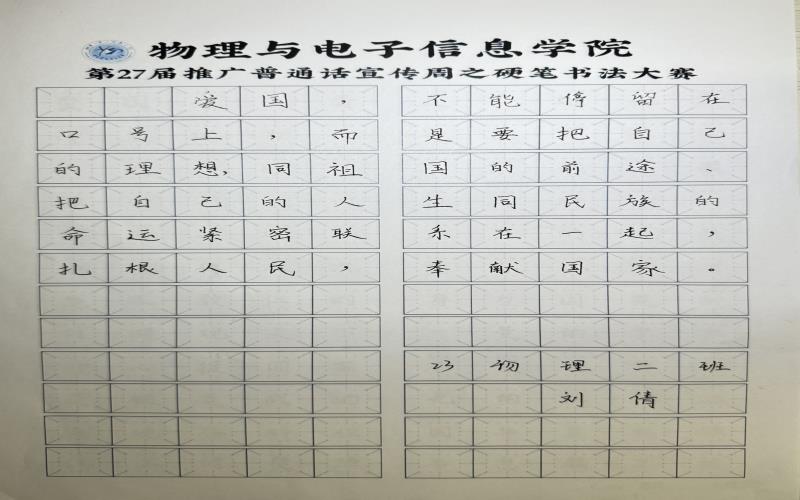 物理与电子信息学院
第27届推广普通话宣传周之硬笔书法大赛
爱国，不能停留在
口号上，而是要把自己
的理想,同祖国的前途、
把自己的人生同民族的
命运紧密联系在一起，
扎根人民，奉献国家。
23物理二班
刘倩